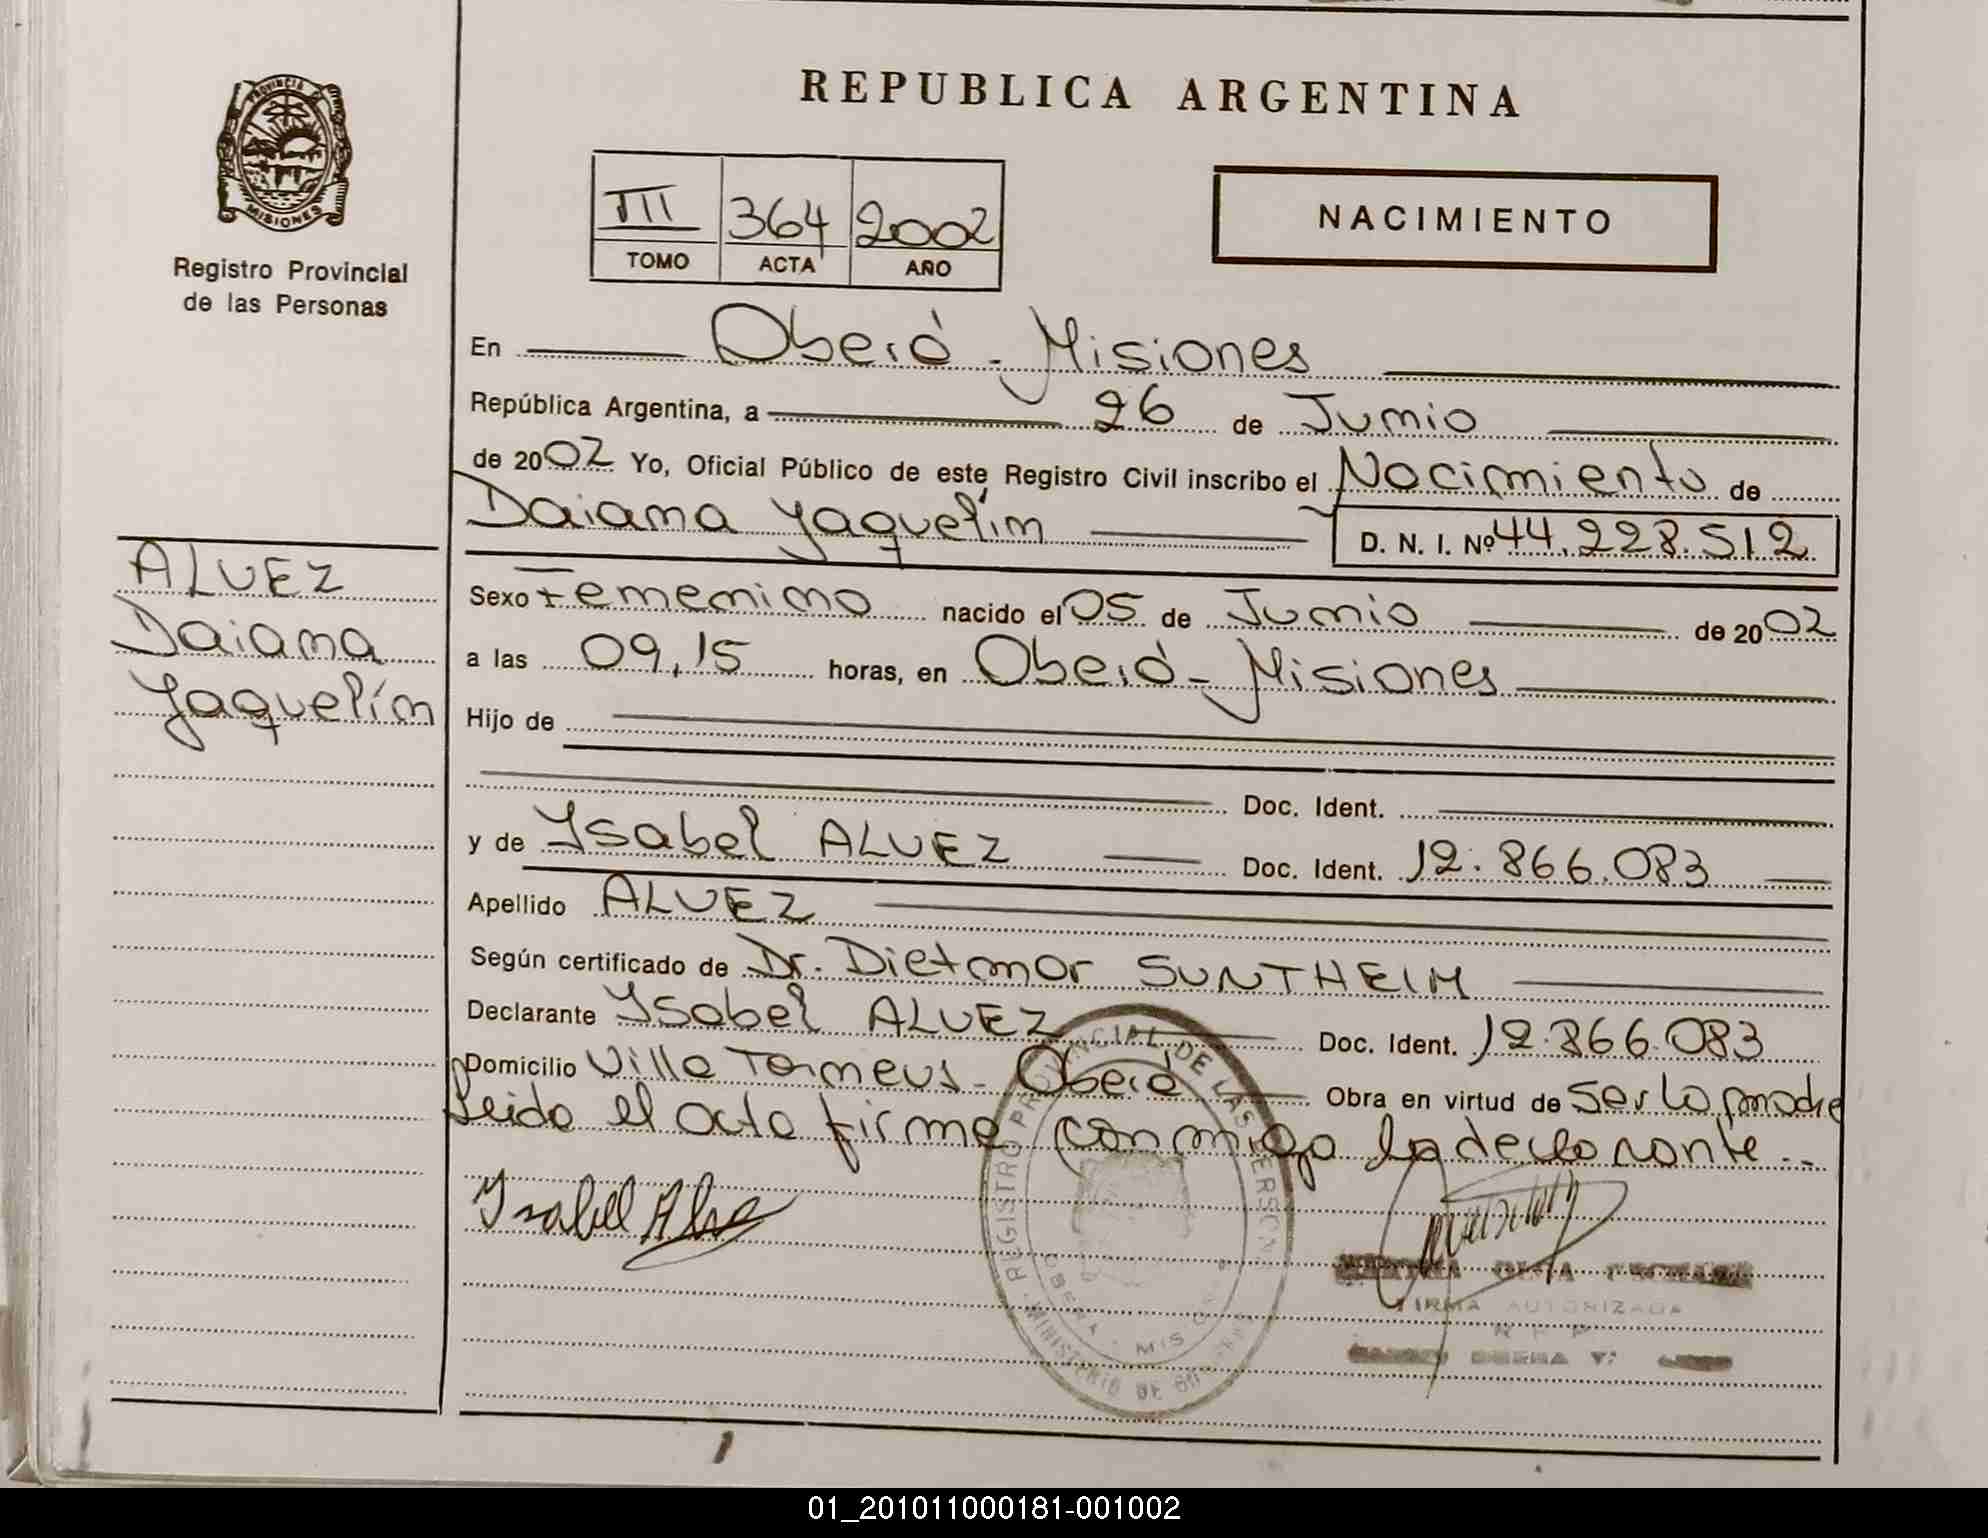 REPUBLICA ARGENTINA
PROVINCIA DE MISIONES
Registro Provincial
de las Personas
III 364 2002
TOMO ACTA AÑO
NACIMIENTO
En Oberá - Misiones
República Argentina, a 26 de Junio
de 2002 Yo, Oficial Público de este Registro Civil inscribo el Nacimiento de
Daiana Yaquelín D. N. I. Nº 44.228.512
ALVEZ
Daiana
Yaquelín
Sexo Femenino nacido el 05 de Junio de 2002
a las 09,15 horas, en Oberá - Misiones
Hijo de
Doc. Ident.
y de Ysabel ALVEZ Doc. Ident. 12.866.083
Apellido ALVEZ
Según certificado de Dr. Dietmar SUNTHEIM
Declarante Ysabel ALVEZ Doc. Ident. 12.866.083
Domicilio Villa Oberá Obra en virtud de ser la madre
Leida el acta firma conmigo la declarante..
Ysabel
REGISTRO PROVINCIAL DE LAS PERSONAS
MINISTERIO DE
OBERA - MIS
FIRMA AUTORIZADA
01_201011000181-001002